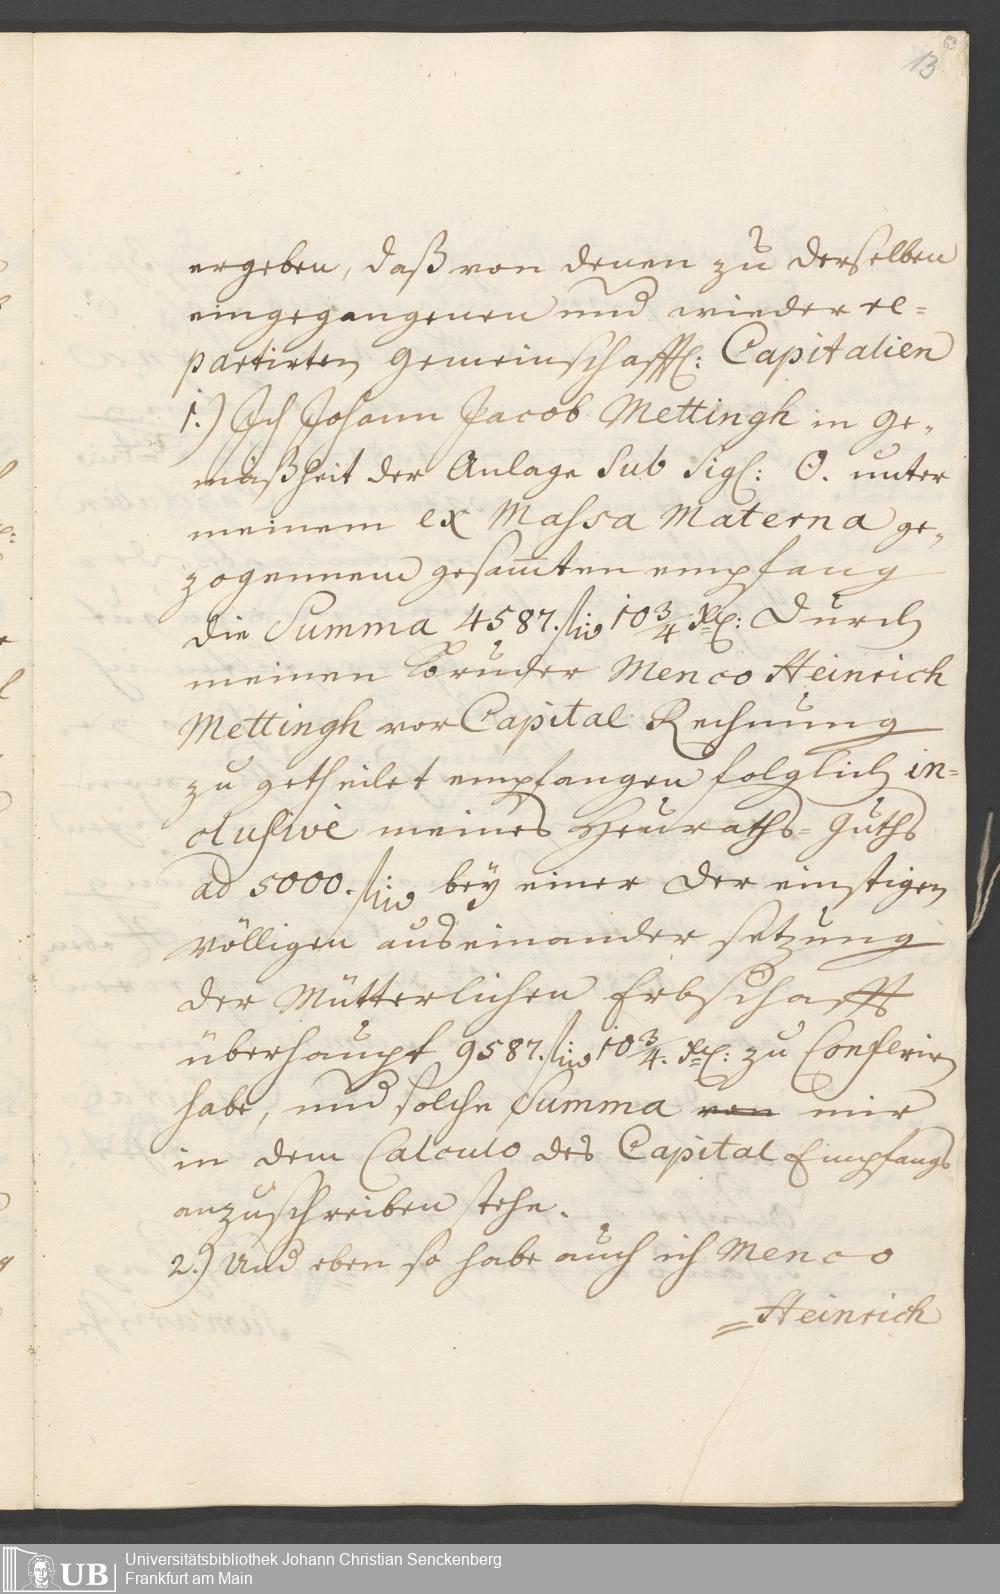 63
13
ergeben, daß von denen zu derselben
eingegangenen und wieder re=
partirten gemeinschafftl: Capitalien
1.) Ich Johann Jacob Mettingh in Ge,,
mäßheit der Anlage Sub Sigl: O. unter
meinem ex Massa Materna ge,,
zogennem gesamten empfang
die Summa 4587. 10 3/4 Xr: durch
meinen Bruder Menco Heinrich
Mettingh vor Capital Rechnung
zu getheilet empfangen folglich in=
clusivè meines Heuraths=Guths
ad 5000. bey einer der einstigen
völligen auseinander setzung
der Mütterlichen Erbschafft
überhaupt 9587. 10 3/4. Xr: zu Conferirn
habe, und solche Summa von mir
in dem Calculo des Capital Empfangs
anzuschreiben stehe.
2.) Und eben so habe auch ich Menco
=Heinrich
UB
Universitätsbibliothek Johann Christian Senckenberg
Frankfurt am Main